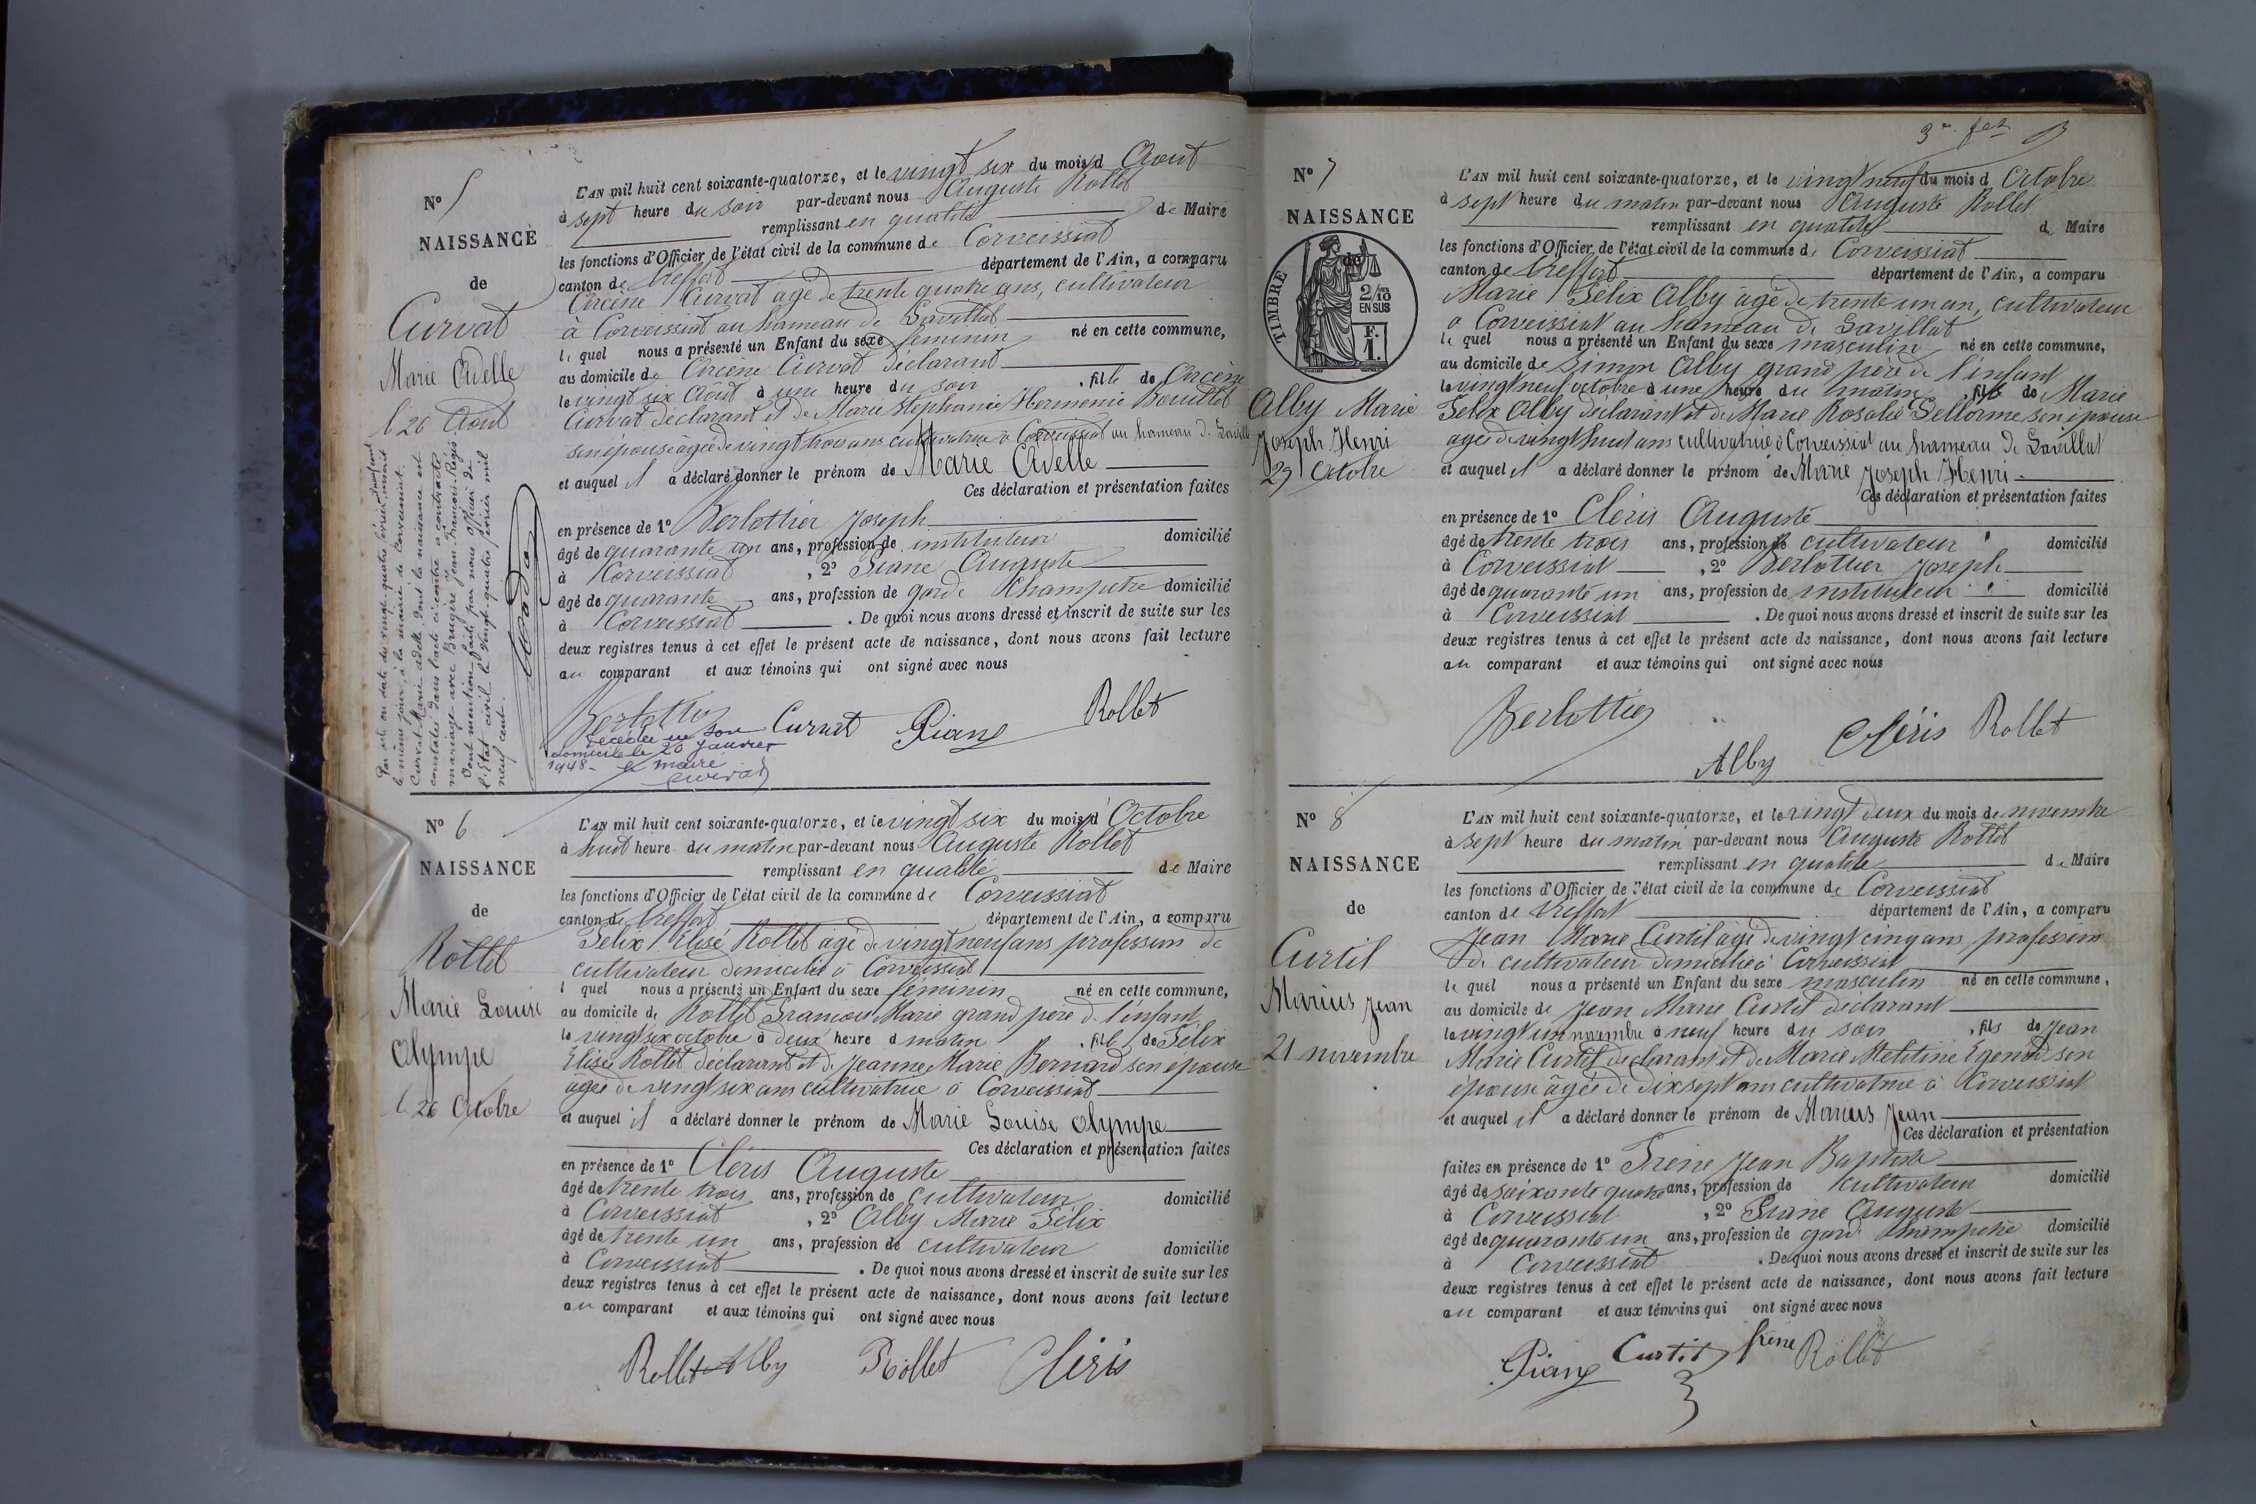 N° 5
NAISSANCE
de
Curvat
Marie Adelle
l 26 Août
L'AN mil huit cent soixante-quatorze, et le vingt six du mois d Aout
à sept heure du soir par-devant nous Auguste Rollet
remplissant en qualité de Maire
les fonctions d'Officier de l'état civil de la commune de Corveissiat
canton de Treffort département de l'Ain, a comparu
Curvat agé de trente quatre ans, cultivateur
à Corveissiat au hameau de Lavillat
le quel nous a présenté un Enfant du sexe feminin né en cette commune,
au domicile de Curvat déclarant
le vingt six Août à une heure du soir, fille de
Curvat déclarant et de Marie Stephanie Hermenie Bouillet
son épouse âgée de vingt trois ans cultivatrice à Corveissiat au hameau de Lavillat
et auquel il a déclaré donner le prénom de Marie Adelle
Ces déclaration et présentation faites
en présence de 1° Berlottier Joseph
âgé de quarante un ans, profession de instituteur domicilié
à Corveissiat, 2° Piane Auguste
âgé de quarante ans, profession de garde Champetre domicilié
à Corveissiat. De quoi nous avons dressé et inscrit de suite sur les
deux registres tenus à cet effet le présent acte de naissance, dont nous avons fait lecture
au comparant et aux témoins qui ont signé avec nous
Berlottier Curvat Piane Rollet
Décédée en son
domicile le 20 janvier
1948 - le maire
Par acte en date du vingt-quatre février mil neuf cent
le même jour, à la mairie de Corveissiat
Curvat Marie Adelle, dont la naissance est
constatée dans l'acte ci-contre a contracté
mariage avec Brugère Jean-François-Régis.
Dont mention faite par nous officier de
l'Etat civil le vingt-quatre février mil
neuf cent.
N° 6
NAISSANCE
de
Rollet
Marie Louise
Olympe
l 26 Octobre
L'AN mil huit cent soixante-quatorze, et le vingt six du mois d'Octobre
à huit heure du matin par-devant nous Auguste Rollet
remplissant en qualité de Maire
les fonctions d'Officier de l'état civil de la commune de Corveissiat
canton de Treffort département de l'Ain, a comparu
Félix Elisé Rollet âgé de vingt neuf ans profession de
cultivateur domicilié à Corveissiat
l quel nous a présenté un Enfant du sexe féminin né en cette commune,
au domicile de Rollet François Marie grand père de l'enfant
le vingt six octobre à deux heure d matin, fille de Félix
Elisée Rollet déclarant et de Jeanne Marie Bernard son épouse
agée de vingt six ans cultivatrice à Corveissiat
et auquel il a déclaré donner le prénom de Marie Louise Olympe
Ces déclaration et présentation faites
en présence de 1° Cléris Auguste
âgé de trente trois ans, profession de cultivateur domicilié
à Corveissiat, 2° Alby Marie Félix
âgé de trente un ans, profession de cultivateur domicilié
à Corveissiat. De quoi nous avons dressé et inscrit de suite sur les
deux registres tenus à cet effet le présent acte de naissance, dont nous avons fait lecture
au comparant et aux témoins qui ont signé avec nous
Rollet Alby Rollet Cléris
N° 7
NAISSANCE
de
TIMBRE
2/10
EN SUS
F.
1.
Alby Marie
Joseph Henri
29 Octobre
L'AN mil huit cent soixante-quatorze, et le vingt neuf du mois d Octobre
à sept heure du matin par-devant nous Auguste Rollet
remplissant en qualité d Maire
les fonctions d'Officier de l'état civil de la commune de Corveissiat
canton de Treffort département de l'Ain, a comparu
Marie Félix Alby âgé de trente un an, cultivateur
a Corveissiat au hameau de Lavillat
le quel nous a présenté un Enfant du sexe masculin né en cette commune,
au domicile de Simon Alby grand père de l'enfant
le vingt neuf octobre à une heure du matin, fils de Marie
Félix Alby déclarant et de Marie Rosalie Pellorme son épouse
agée de vingt huit ans cultivatrice à Corveissiat au hameau de Lavillat
et auquel il a déclaré donner le prénom de Marie Joseph Henri
Ces déclaration et présentation faites
en présence de 1° Cléris Auguste
âgé de trente trois ans, profession de cultivateur domicilié
à Corveissiat, 2° Berlottier Joseph
âgé de quarante un ans, profession de instituteur domicilié
à Corveissiat. De quoi nous avons dressé et inscrit de suite sur les
deux registres tenus à cet effet le présent acte de naissance, dont nous avons fait lecture
au comparant et aux témoins qui ont signé avec nous
Berlottier Alby Cléris Rollet
N° 8
NAISSANCE
de
Curtil
Marius Jean
21 novembre
L'AN mil huit cent soixante-quatorze, et le vingt deux du mois de novembre
à sept heure du matin par-devant nous Auguste Rollet
remplissant en qualité de Maire
les fonctions d'Officier de l'état civil de la commune de Corveissiat
canton de Treffort département de l'Ain, a comparu
Jean Marie Curtil agé de vingt cinq ans profession
de cultivateur domicilié à Corveissiat
le quel nous a présenté un Enfant du sexe masculin né en cette commune,
au domicile de Jean Marie Curtil déclarant
le vingt un novembre à neuf heure du soir, fils de Jean
Marie Curtil déclarant et de Marie son
épouse âgée de dix sept ans cultivatrice à Corveissiat
et auquel il a déclaré donner le prénom de Marius Jean
Ces déclaration et présentation
faites en présence de 1° Frène Jean Baptiste
âgé de soixante quatre ans, profession de cultivateur domicilié
à Corveissiat, 2° Piane Auguste
âgé de quarante un ans, profession de garde champetre domicilié
à Corveissiat. De quoi nous avons dressé et inscrit de suite sur les
deux registres tenus à cet effet le présent acte de naissance, dont nous avons fait lecture
au comparant et aux témoins qui ont signé avec nous
Piane Curtil frène Rollet